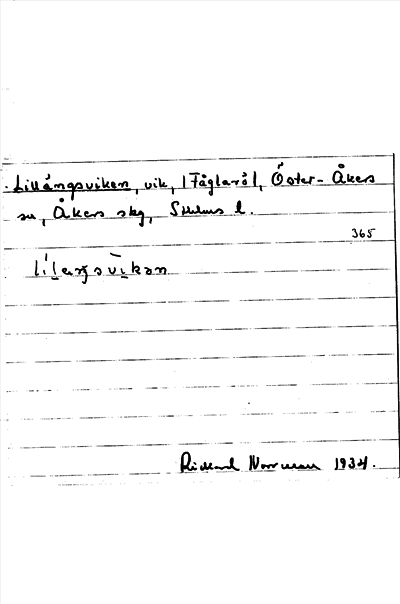 Lillängsviken, vik, [Fåglarö], Öster-Åkers
sn, Åkers skg, Sthlms l.
365
Rickard Norrman 1934.